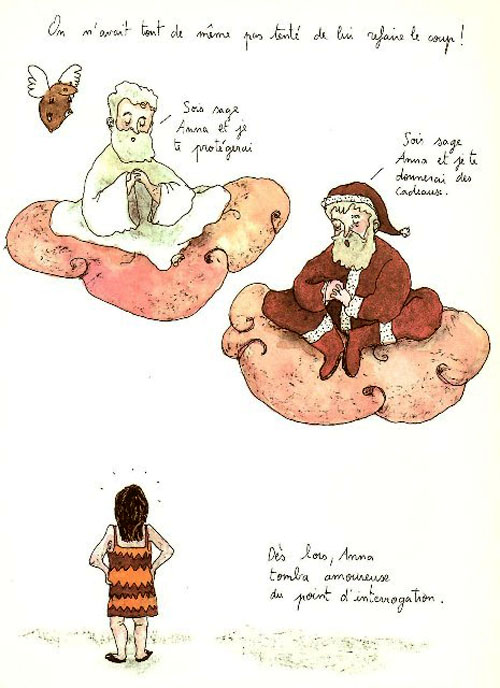 On n'avait tout de même pas tenté de lui refaire le coup !
Sois sage
Anna et je
te protégerai
Sois sage
Anna et je te
donnerai des
cadeaux.
Dès lors, Anna
tomba amoureuse
du point d'interrogation.